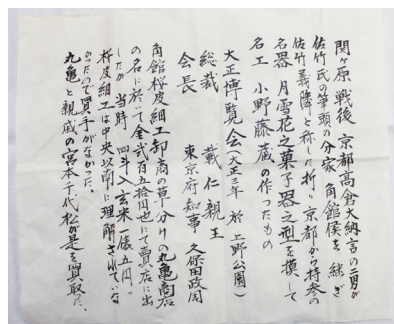 関ヶ原戦後 京都高倉大納言の二男が
佐竹氏の筆頭の分家 角館侯を継ぎ
佐竹義隣と称した折り 京都から持参の
名器 月雪花之菓子器之型を摸して
名工 小野藤蔵の作ったもの
大正博覧会(大正三年 於 上野公園)
総裁 載仁親王
会長 東京府知事 久保田政周
角館桜皮細工卸商の草分けの丸亀商店
の名に於いて金弐百五拾円也にて賣店に出
したが 当時 四斗入玄米一俵五円。
桜皮細工は中央以南に理解されていな
かったので買手がなかった。
丸亀と親戚の宮本千代松が是を買取た。